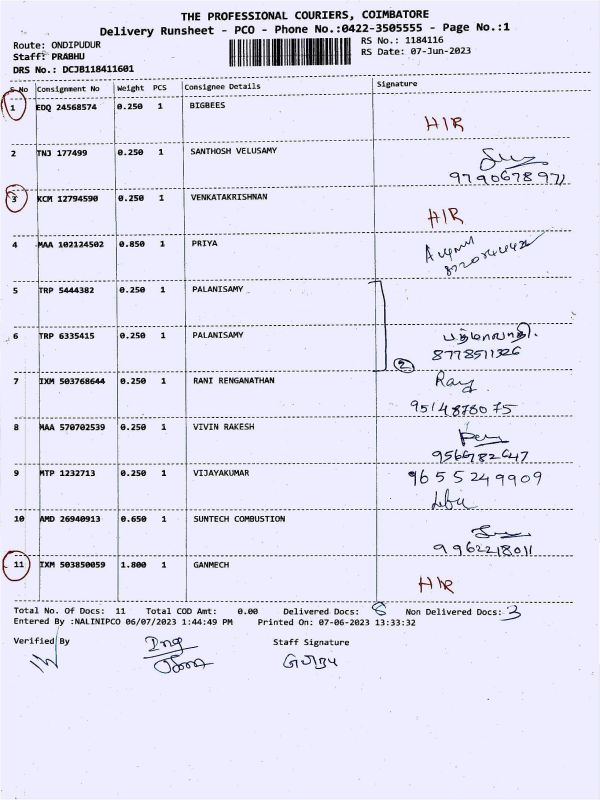 THE PROFESSIONAL COURIERS, COIMBATORE
Delivery Runsheet - PCO - Phone No.:0422-3505555 - Page No.:1
Route: ONDIPUDUR RS No.: 1184116
Staff: PRABHU RS Date: 07-Jun-2023
DRS No.: DCJB118411601
S No Consignment No Weight PCS Consignee Details Signature
1 EDQ 24568574 0.250 1 BIGBEES
H/R
2 TNJ 177499 0.250 1 SANTHOSH VELUSAMY
9790678971
3 KCM 12794590 0.250 1 VENKATAKRISHNAN
H/R
4 MAA 102124502 0.850 1 PRIYA
5 TRP 5444382 0.250 1 PALANISAMY
6 TRP 6335415 0.250 1 PALANISAMY
8778511326
2
7 IXM 503768644 0.250 1 RANI RENGANATHAN
Ray
9514878075
8 MAA 570702539 0.250 1 VIVIN RAKESH
9566782647
9 MTP 1232713 0.250 1 VIJAYAKUMAR
9655249909
10 AMD 26940913 0.650 1 SUNTECH COMBUSTION
9962218011
11 IXM 503850059 1.800 1 GANMECH
H/R
Total No. Of Docs: 11 Total COD Amt: 0.00 Delivered Docs: 8 Non Delivered Docs: 3
Entered By :NALINIPCO 06/07/2023 1:44:49 PM Printed On: 07-06-2023 13:33:32
Verified By Staff Signature